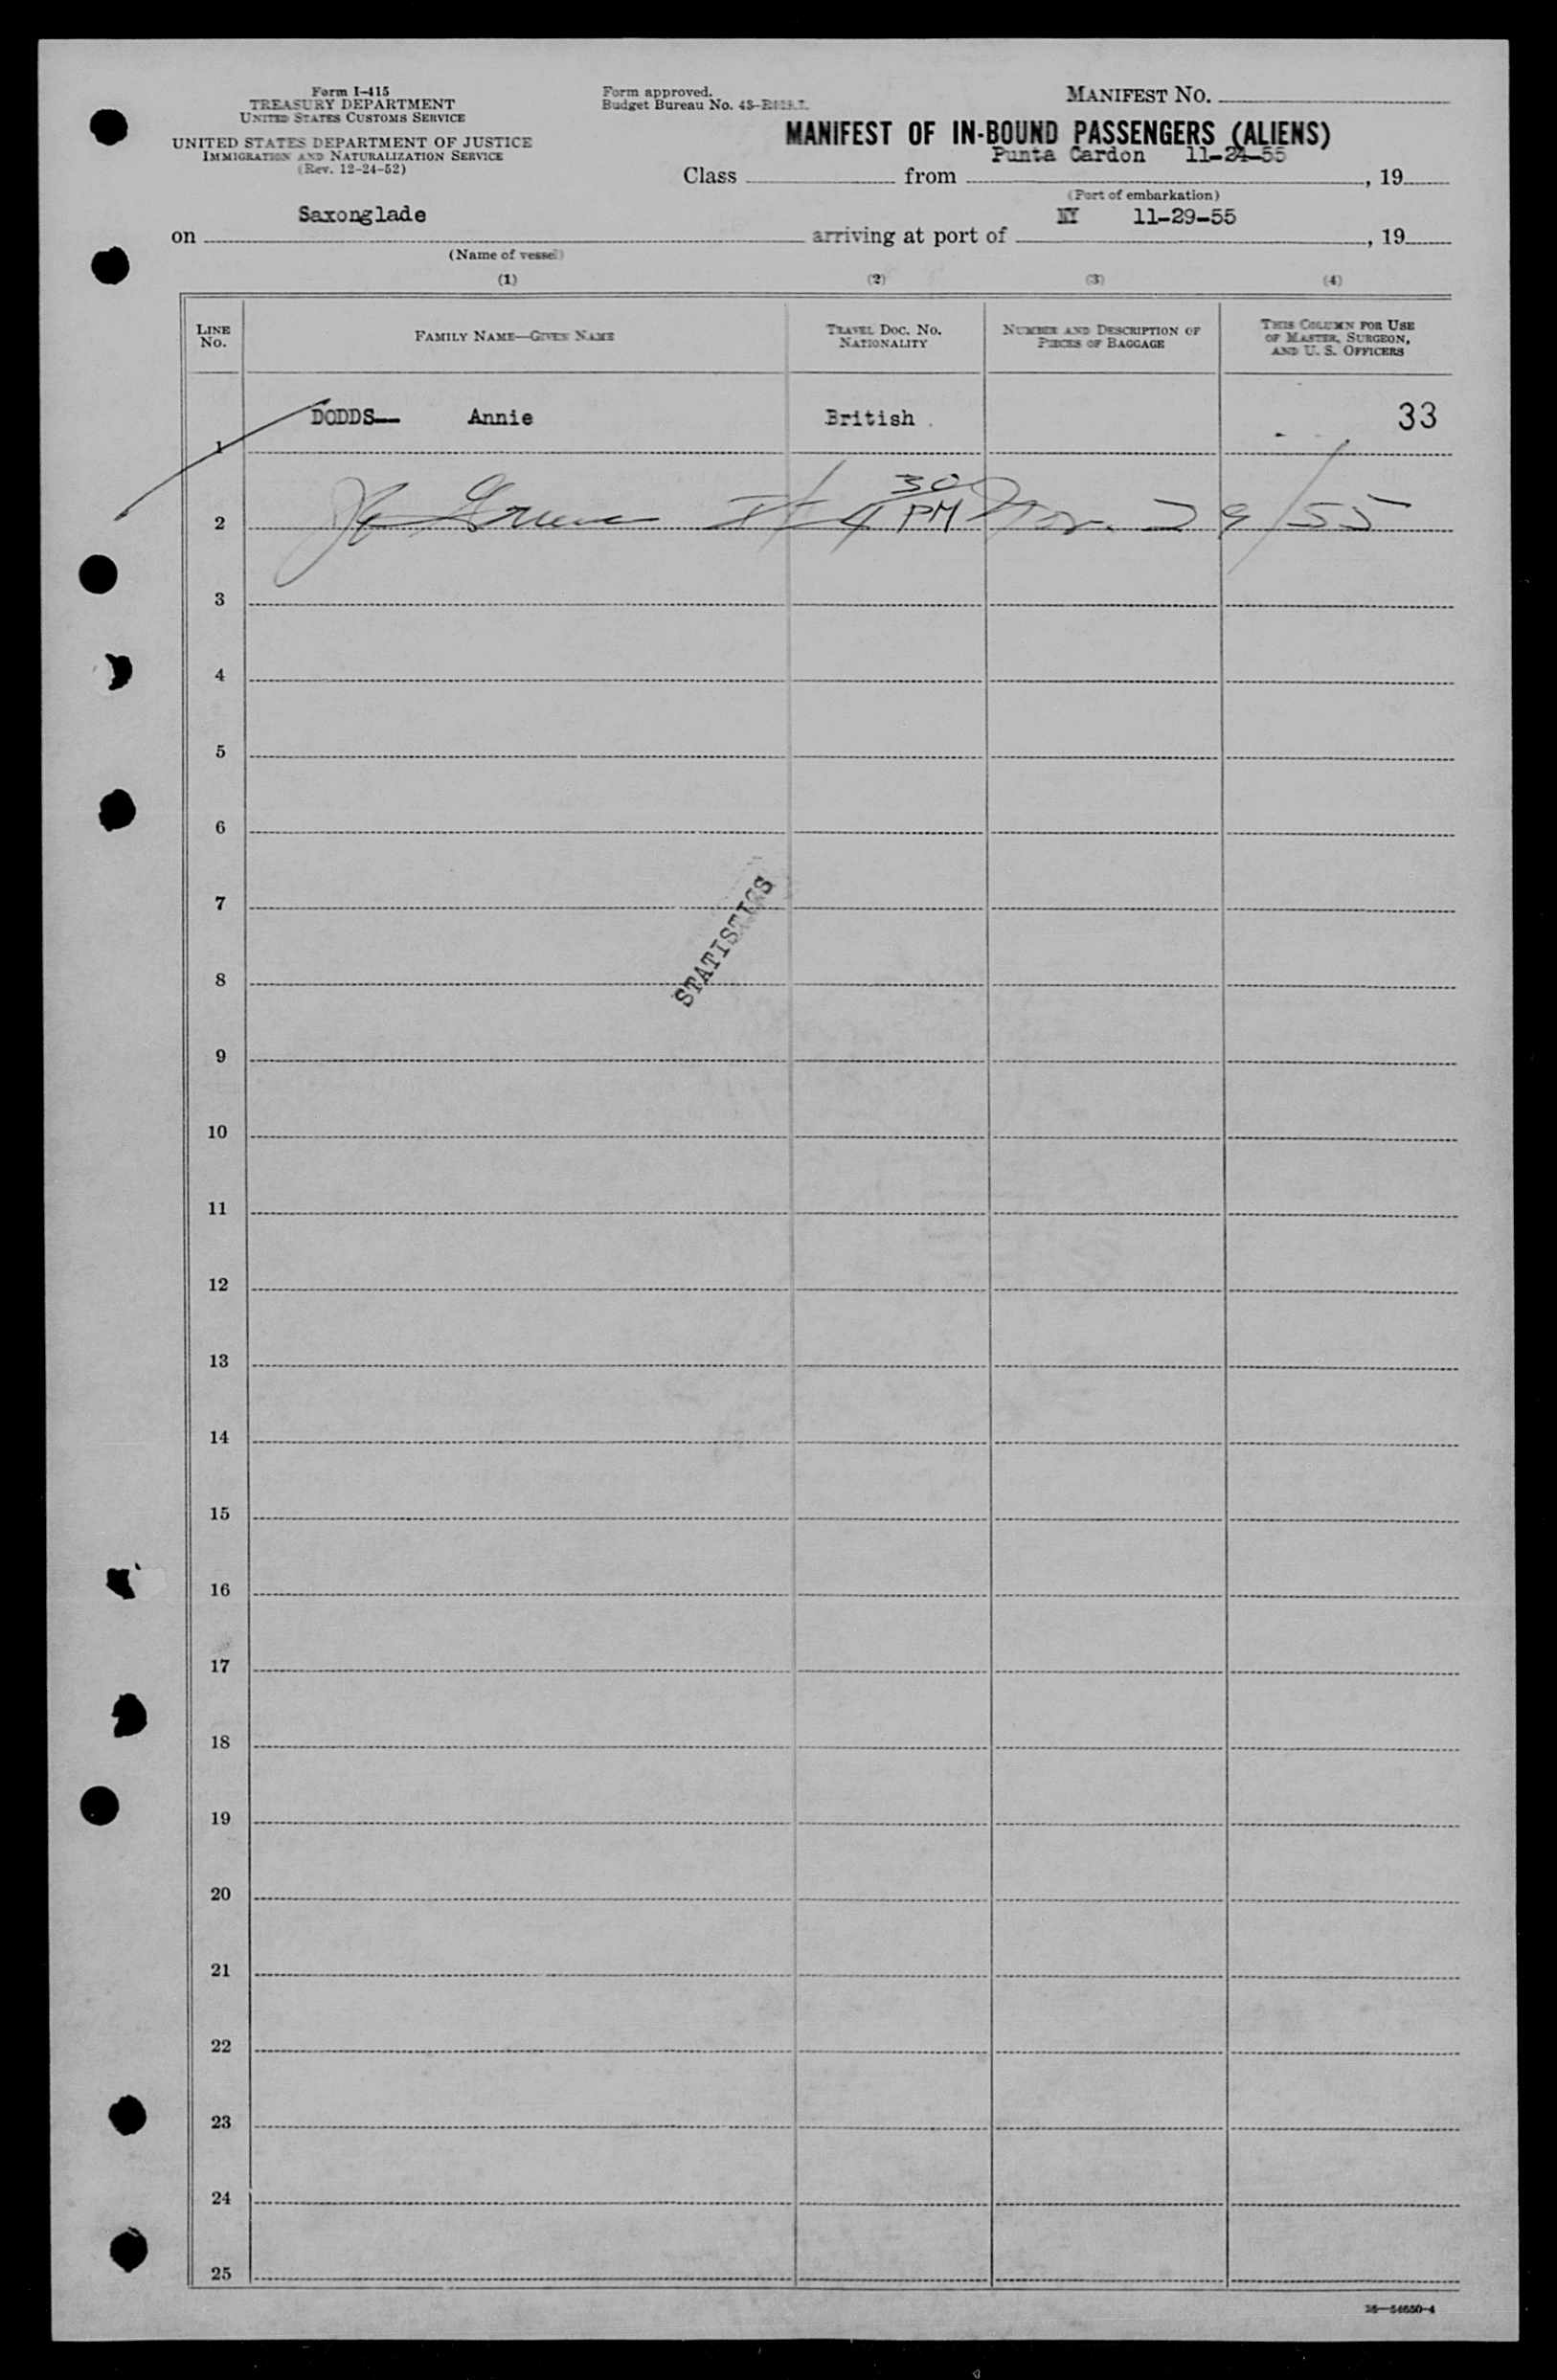 Form I-415
TREASURY DEPARTMENT
UNITED STATES CUSTOMS SERVICE
UNITED STATES DEPARTMENT OF JUSTICE
IMMIGRATION AND NATURALIZATION SERVICE
(Rev. 12-24-52)
Form approved.
Budget Bureau No.
MANIFEST NO.
MANIFEST OF IN-BOUND PASSENGERS (ALIENS)
Punta Cardon 11-24-55
Class from , 19
(Port of embarkation)
Saxonglade NY 11-29-55
on arriving at port of , 19
(Name of vessel)
(1) (2) (3) (4)
LINE No. FAMILY NAME—GIVEN NAME TRAVEL DOC. NO. NATIONALITY NUMBER AND DESCRIPTION OF PIECES OF BAGGAGE THIS COLUMN FOR USE OF MASTER, SURGEON, AND U. S. OFFICERS
1 DODDS— Annie British 33
2 4 30 PM Nov. 29/55
3
4
5
6
7
STATISTICS
8
9
10
11
12
13
14
15
16
17
18
19
20
21
22
23
24
25